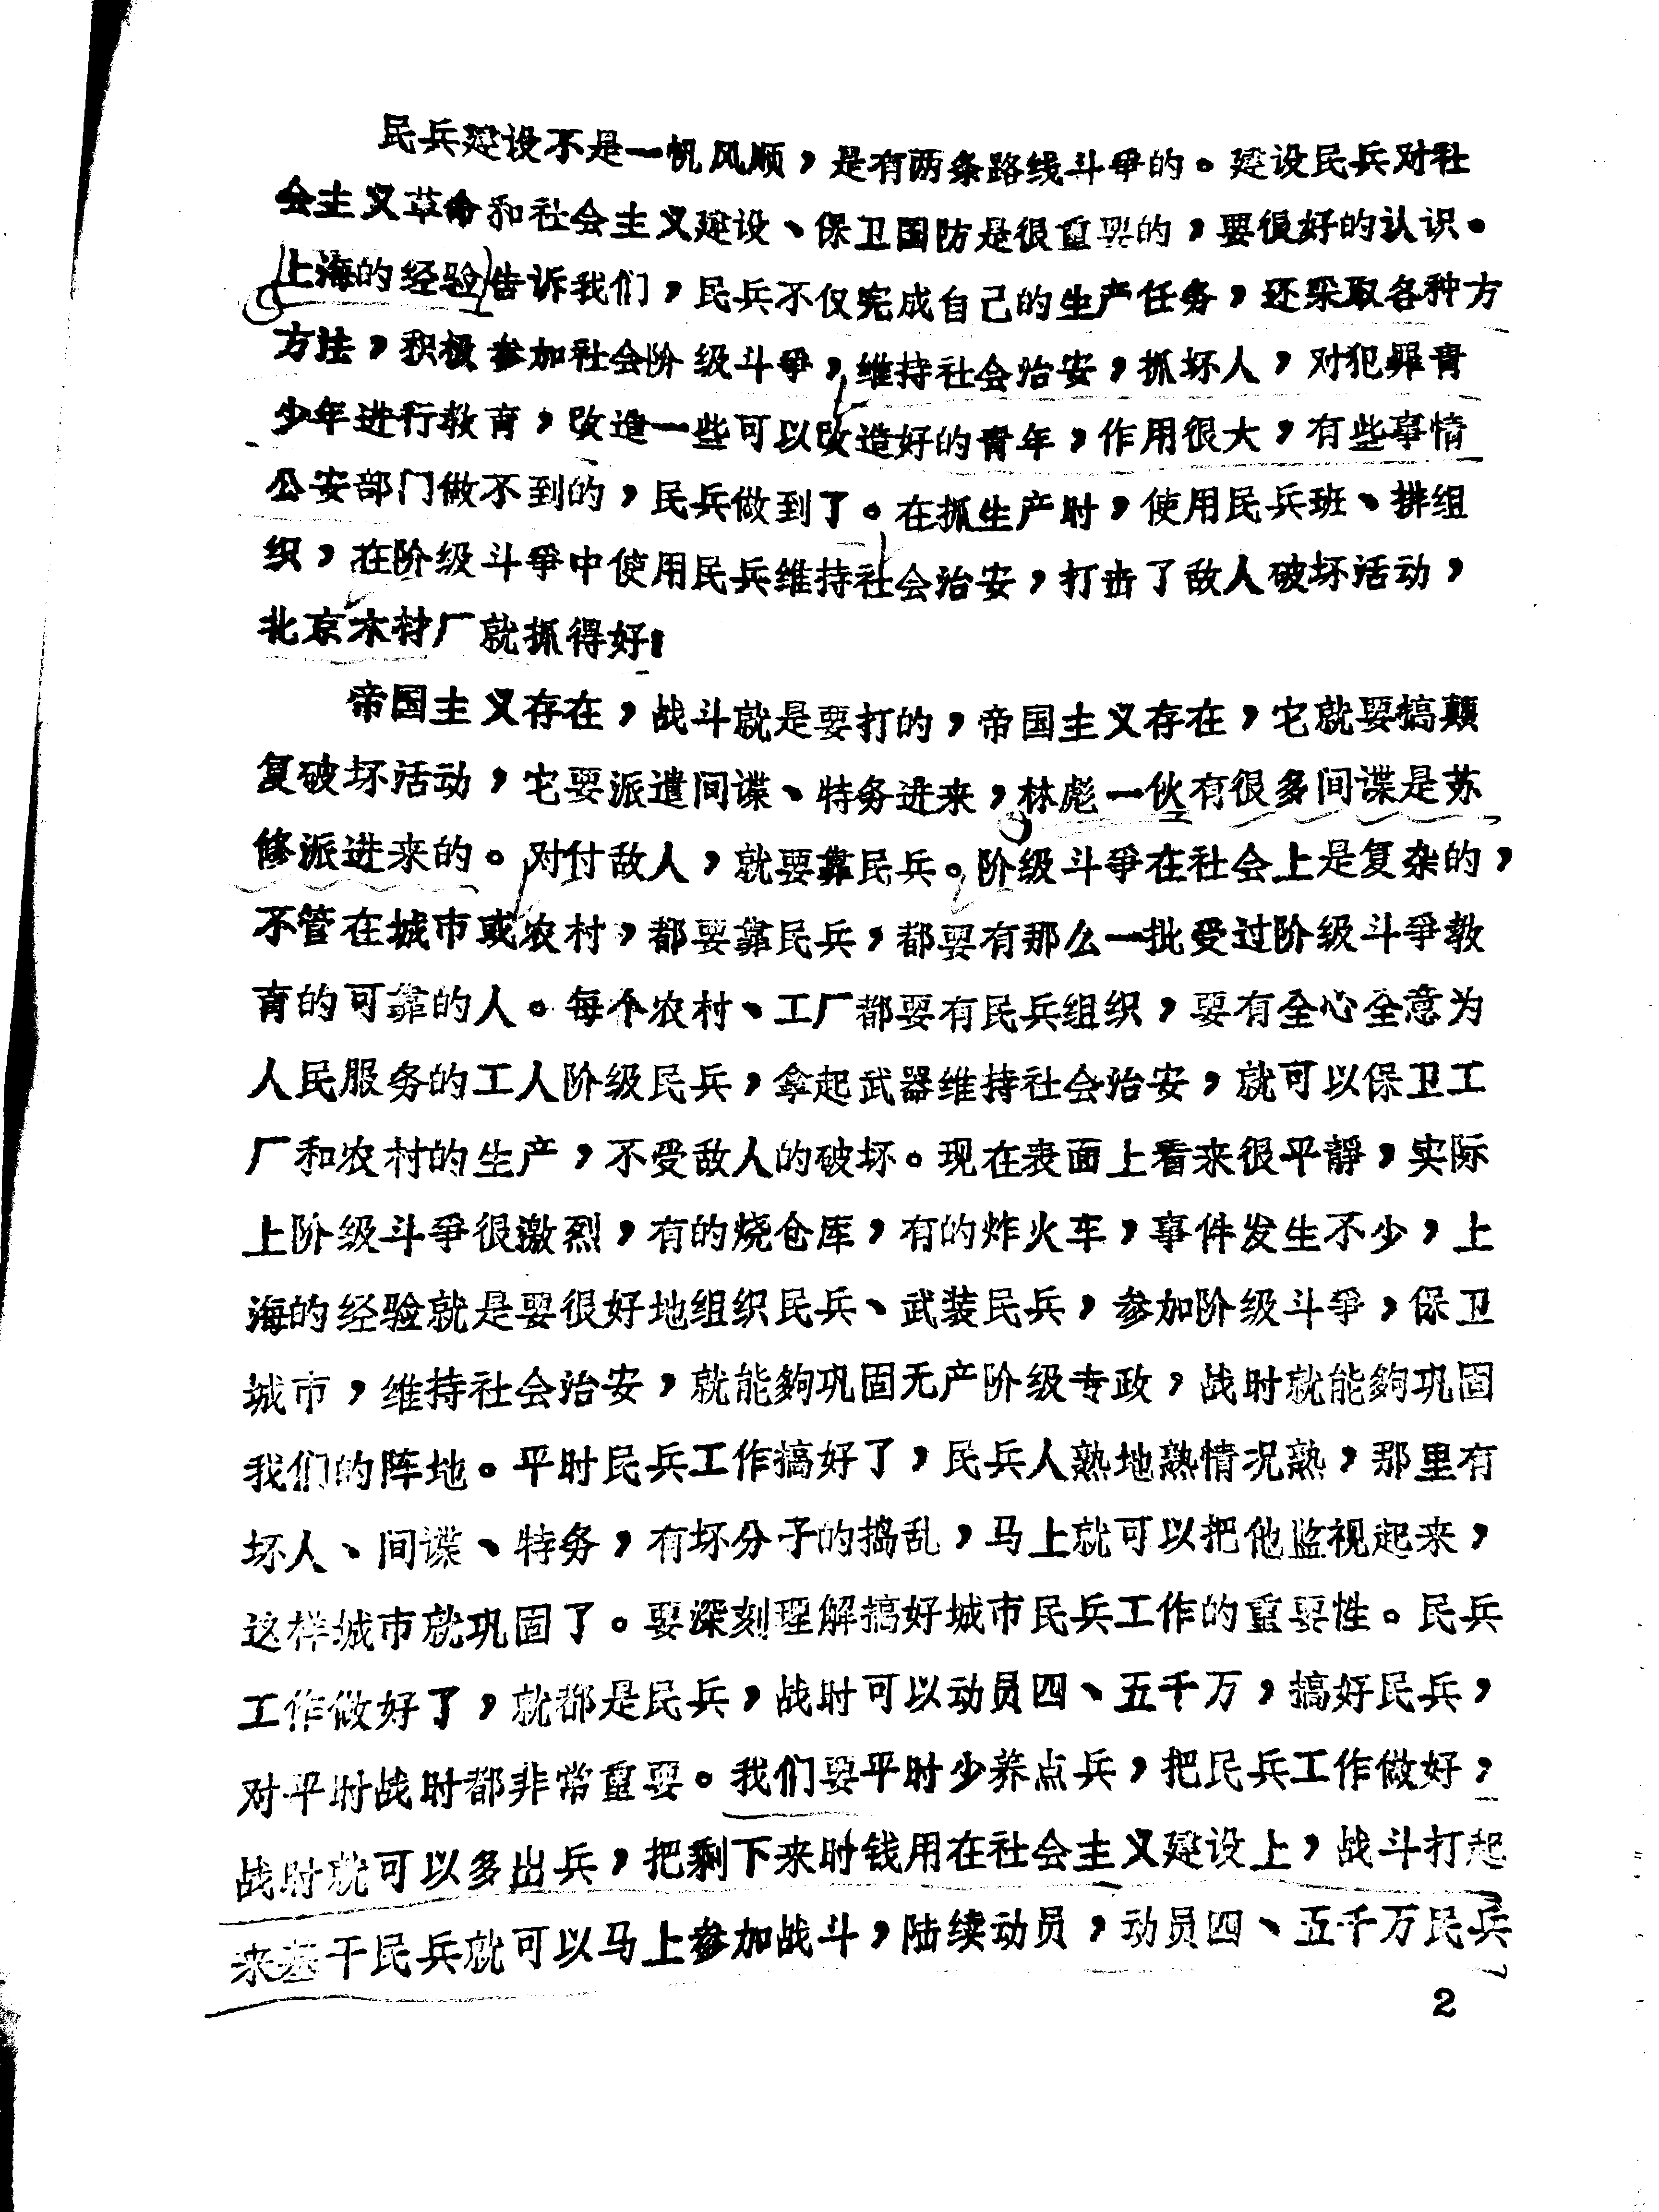 民兵建设不是一帆风顺，是有两条路线斗争的。建设民兵对社
会主义革命和社会主义建设、保卫国防是很重要的，要很好的认识。
上海的经验告诉我们，民兵不仅完成自己的生产任务，还采取各种方
方法，积极参加社会阶级斗争，维持社会治安，抓坏人，对犯罪青
少年进行教育，改造一些可以改造好的青年，作用很大，有些事情
公安部门做不到的，民兵做到了。在抓生产时，使用民兵班、排组
织，在阶级斗争中使用民兵维持社会治安，打击了敌人破坏活动，
北京木材厂就抓得好！
帝国主义存在，战斗就是要打的，帝国主义存在，它就要搞颠
复破坏活动，它要派遣间谍、特务进来，林彪一伙有很多间谍是苏
修派进来的。对付敌人，就要靠民兵。阶级斗争在社会上是复杂的，
不管在城市或农村，都要靠民兵，都要有那么一批受过阶级斗争教
育的可靠的人。每个农村、工厂都要有民兵组织，要有全心全意为
人民服务的工人阶级民兵，拿起武器维持社会治安，就可以保卫工
厂和农村的生产，不受敌人的破坏。现在表面上看来很平静，实际
上阶级斗争很激烈，有的烧仓库，有的炸火车，事件发生不少，上
海的经验就是要很好地组织民兵、武装民兵，参加阶级斗争，保卫
城市，维持社会治安，就能夠巩固无产阶级专政，战时就能夠巩固
我们的阵地。平时民兵工作搞好了，民兵人熟地熟情况熟，那里有
坏人、间谍、特务，有坏分子的捣乱，马上就可以把他监视起来，
这样城市就巩固了。要深刻理解搞好城市民兵工作的重要性。民兵
工作做好了，就都是民兵，战时可以动员四、五千万，搞好民兵，
对平时战时都非常重要。我们要平时少养点兵，把民兵工作做好，
战时就可以多出兵，把剩下来时钱用在社会主义建设上，战斗打起
来基干民兵就可以马上参加战斗，陆续动员，动员四、五千万民兵
2